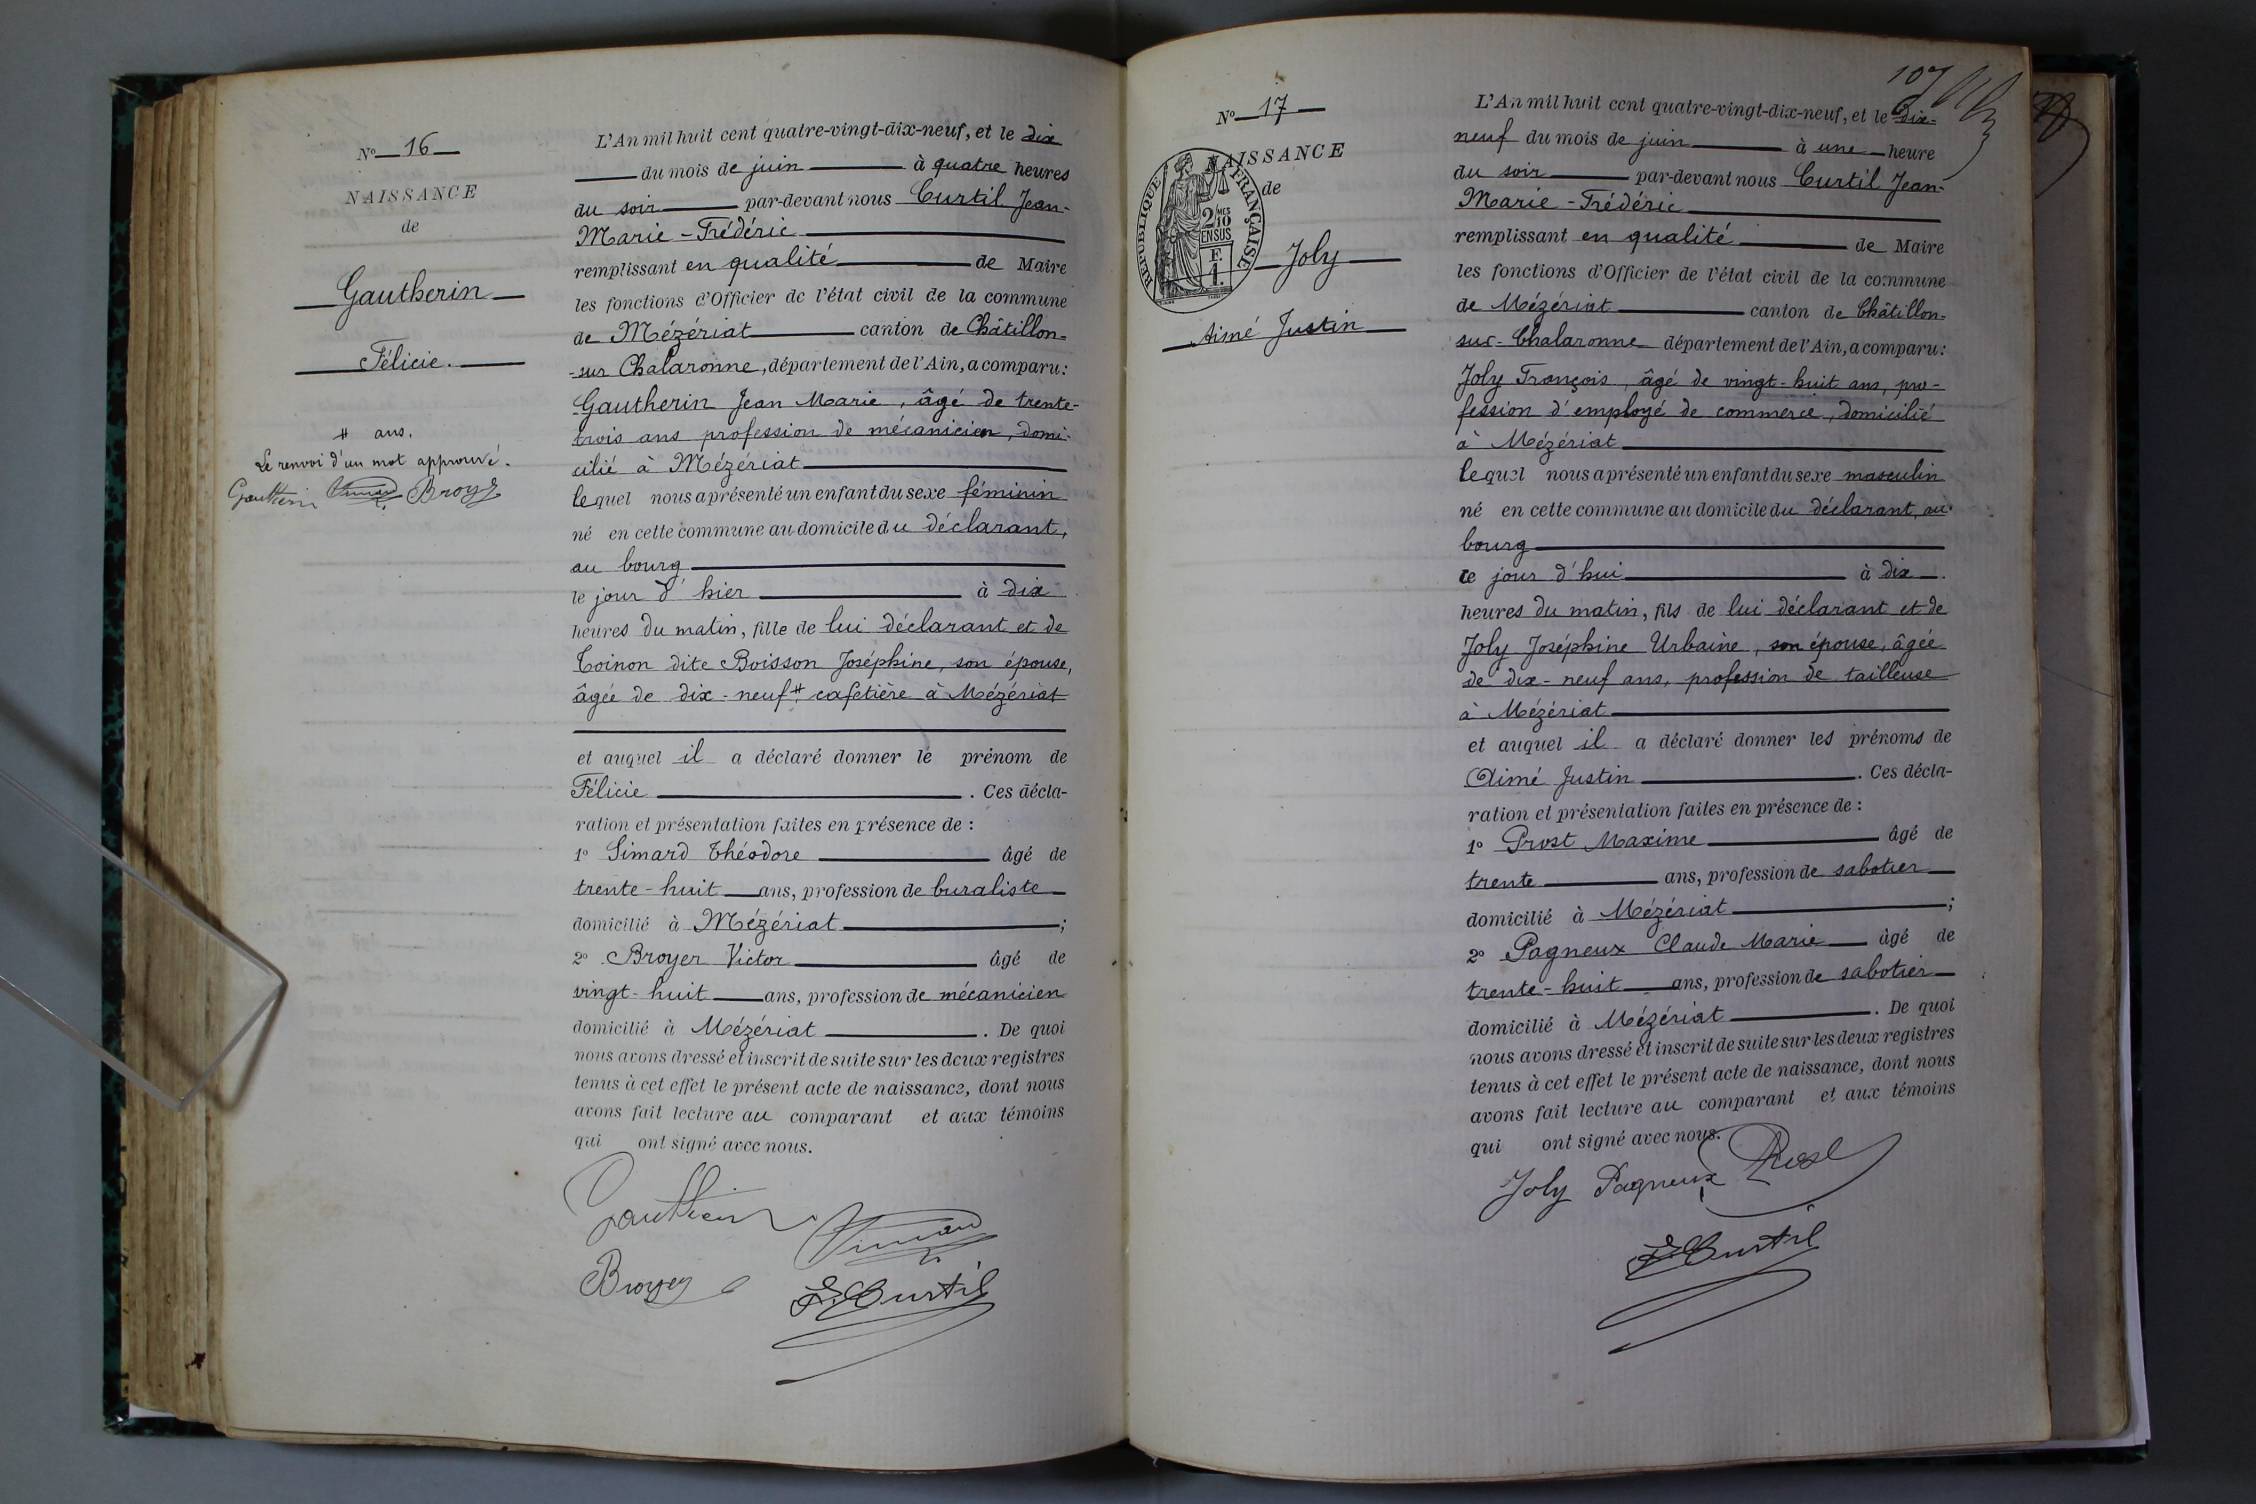 N° 16
NAISSANCE
de
Gautherin
Félicie.
# ans.
Le renvoi d'un mot approuvé.
Gautherin Simard Broyer
L'An mil huit cent quatre-vingt-dix-neuf, et le dix
du mois de juin à quatre heures
du soir par-devant nous Curtil Jean-
Marie-Frédéric
remplissant en qualité de Maire
les fonctions d'Officier de l'état civil de la commune
de Mézériat canton de Châtillon-
-sur Chalaronne, département de l'Ain, a comparu:
Gautherin Jean Marie, âgé de trente-
trois ans profession de mécanicien, domi-
cilié à Mézériat
lequel nous a présenté un enfant du sexe féminin
né en cette commune au domicile du déclarant,
au bourg
le jour d'hier à dix
heures du matin, fille de lui déclarant et de
Toinon dite Boisson Joséphine, son épouse,
âgée de dix-neuf #, cafetière à Mézériat
et auquel il a déclaré donner le prénom de
Félicie. Ces décla-
ration et présentation faites en présence de :
1° Simard Théodore âgé de
trente-huit ans, profession de buraliste
domicilié à Mézériat ;
2° Broyer Victor âgé de
vingt-huit ans, profession de mécanicien
domicilié à Mézériat. De quoi
nous avons dressé et inscrit de suite sur les deux registres
tenus à cet effet le présent acte de naissance, dont nous
avons fait lecture au comparant et aux témoins
qui ont signé avec nous.
Gautherin Simard
Broyer F. Curtil
107
N° 17
NAISSANCE
de
RÉPUBLIQUE FRANÇAISE
2/10 MES
EN SUS
F.
1.
Joly
Aimé Justin
L'An mil huit cent quatre-vingt-dix-neuf, et le dix-
neuf du mois de juin à une heure
du soir par-devant nous Curtil Jean-
Marie-Frédéric
remplissant en qualité de Maire
les fonctions d'Officier de l'état civil de la commune
de Mézériat canton de Châtillon-
sur-Chalaronne département de l'Ain, a comparu:
Joly François, âgé de vingt-huit ans, pro-
fession d'employé de commerce, domicilié
à Mézériat
lequel nous a présenté un enfant du sexe masculin
né en cette commune au domicile du déclarant, au
bourg
ce jour d'hui à dix.
heures du matin, fils de lui déclarant et de
Joly Joséphine Urbaine, son épouse, âgée
de dix-neuf ans, profession de tailleuse
à Mézériat
et auquel il a déclaré donner les prénoms de
Aimé Justin. Ces décla-
ration et présentation faites en présence de :
1° Prost Maxime âgé de
trente ans, profession de sabotier
domicilié à Mézériat ;
2° Pagneux Claude Marie âgé de
trente-huit ans, profession de sabotier
domicilié à Mézériat. De quoi
nous avons dressé et inscrit de suite sur les deux registres
tenus à cet effet le présent acte de naissance, dont nous
avons fait lecture au comparant et aux témoins
qui ont signé avec nous.
Joly Pagneux Prost
F. Curtil